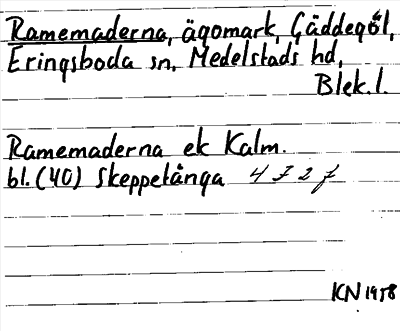 Ramemaderna, ägomark, Gäddegöl,
Eringsboda sn, Medelstads hd,
Blek.l.
Ramemaderna ek Kalm.
bl. (40) Skeppetånga 4 F 2 f
KN 1958